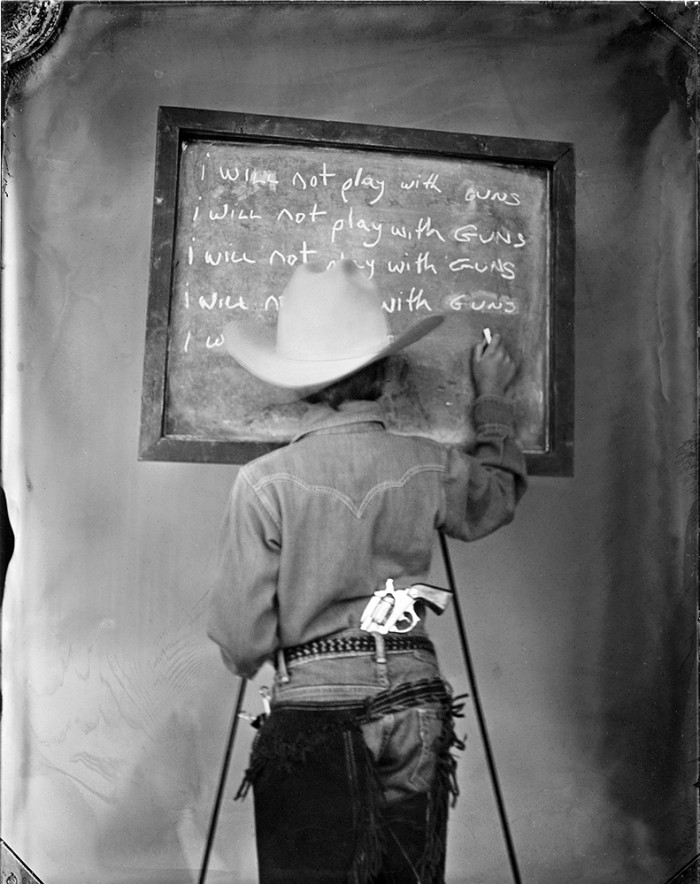 i WILL not play with GUNS
i WILL not play with GUNS
i WILL not play with GUNS
i WILL with GUNS
i